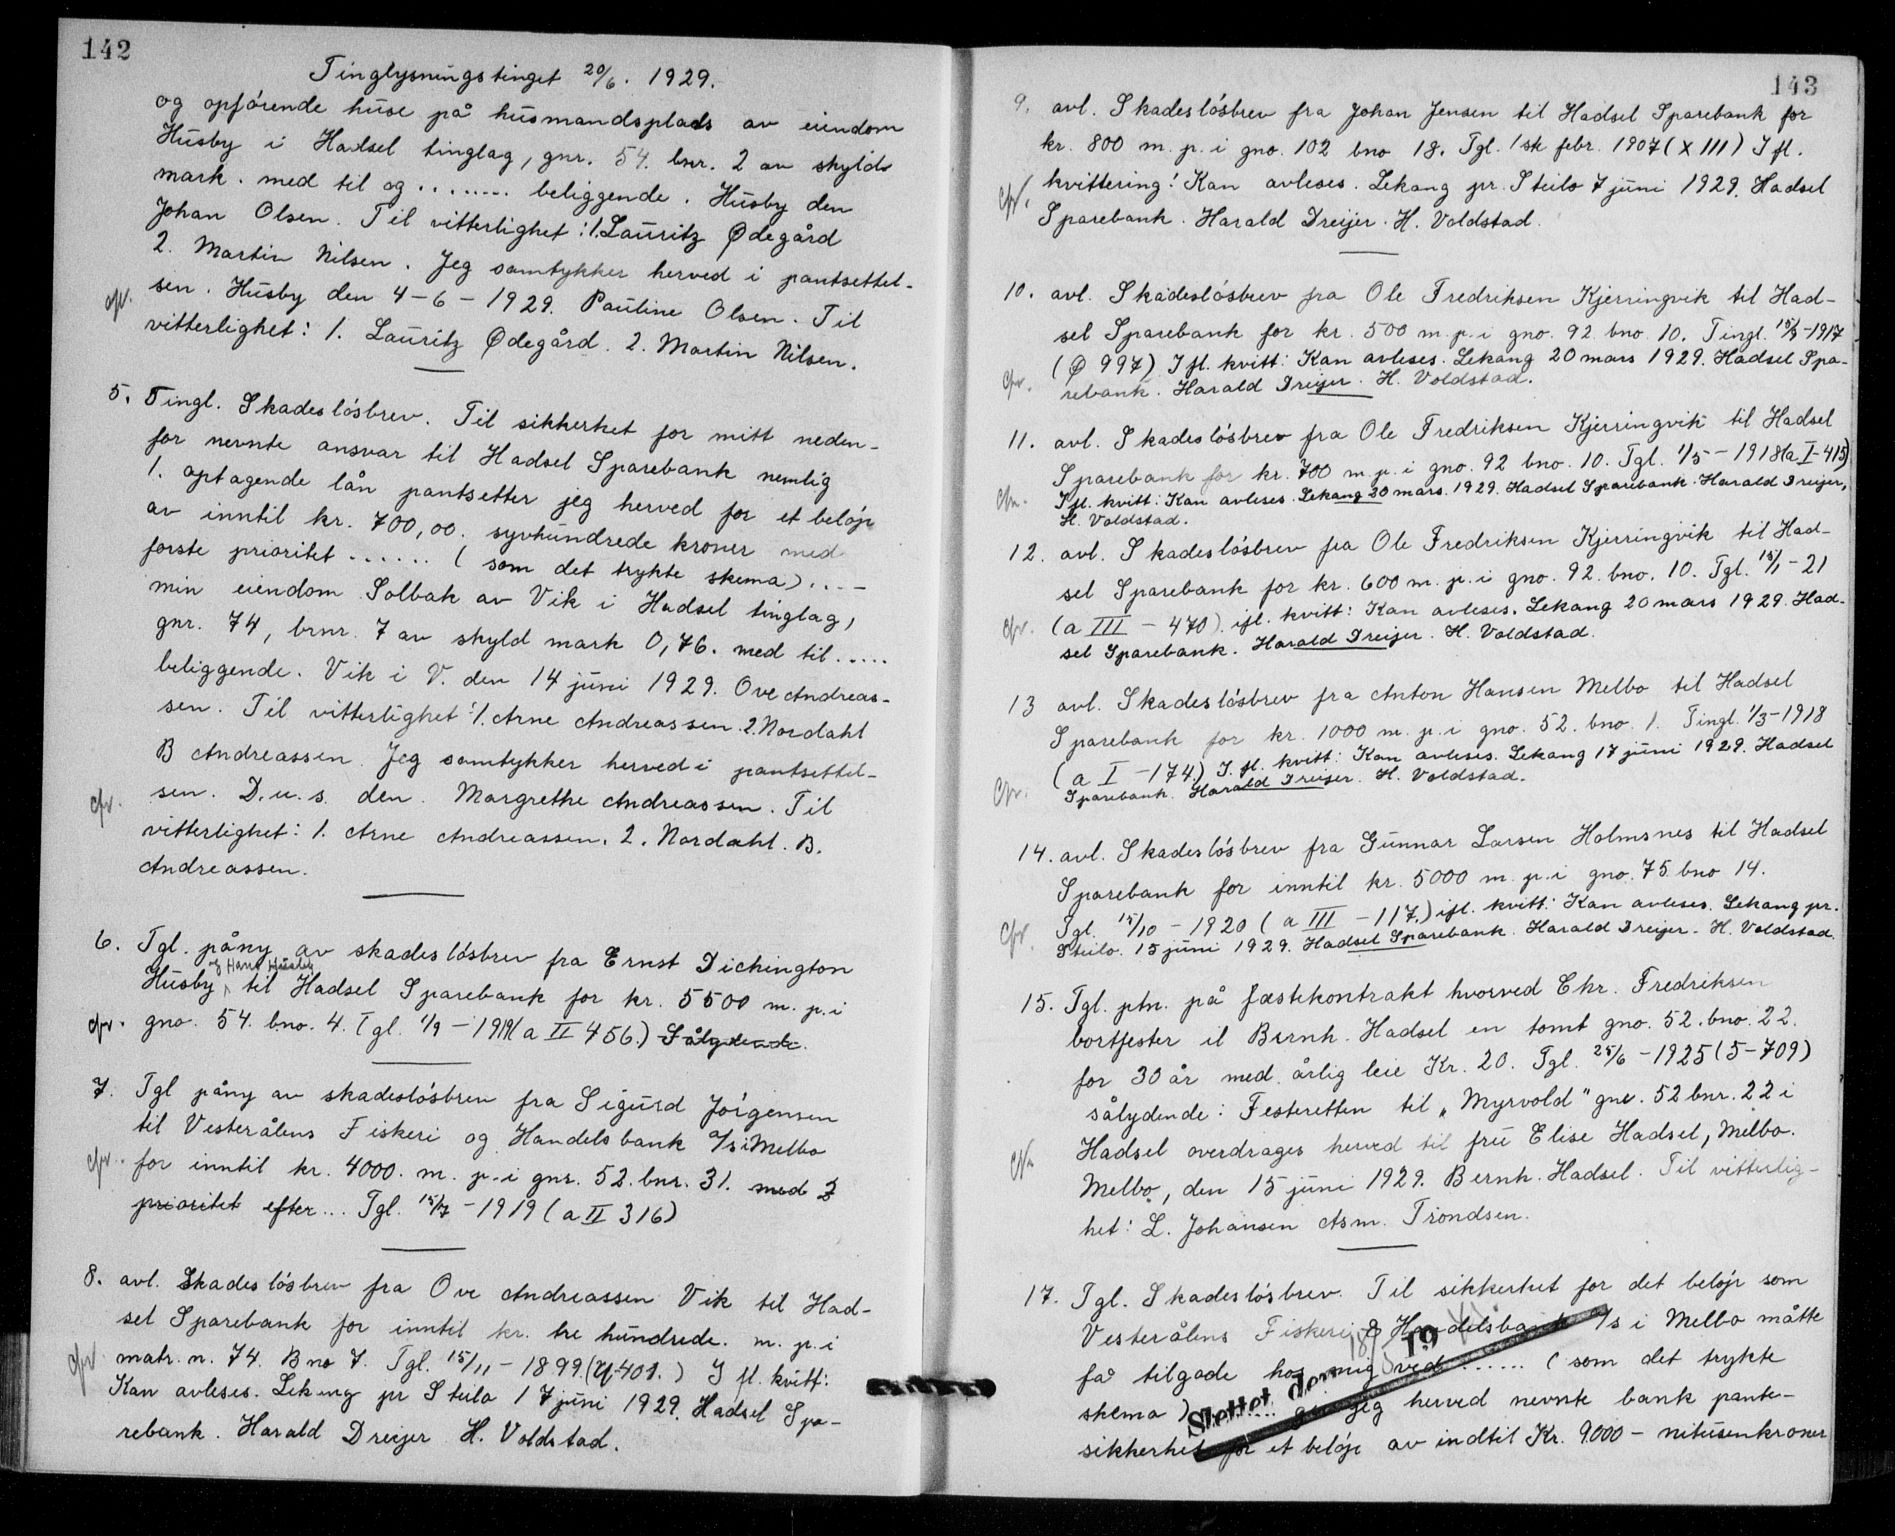 142
Tinglysningstinget 20/6. 1929.
og opførende huse på husmandsplads av eiendom
Husby i Hadsel tinglag, gnr. 54. bnr. 2 av skyld
mark. med til og ........ beliggende. Husby den
Johan Olsen. Til vitterlighet: 1. Lauritz Ødegård
2. Martin Nilsen. Jeg samtykker herved i pantsettel-
sen. Husby den 4-6-1929. Pauline Olsen. Til
vitterlighet: 1. Lauritz Ødegård. 2. Martin Nilsen.
5. Tingl. Skadesløsbrev. Til sikkerhet for mitt neden-
for nevnte ansvar til Hadsel Sparebank nemlig
1. optagende lån pantsetter jeg herved for et beløp
av inntil kr. 700,00. syvhundrede kroner med
første prioritet ...... (som det trykte skema)....
min eiendom Solbak av Vik i Hadsel tinglag,
gnr. 74, brnr. 7 av skyld mark 0,76. med til.....
beliggende. Vik i V. den 14 juni 1929. Ove Andreas-
sen. Til vitterlighet: 1. Arne Andreassen. 2. Nordahl
B Andreassen. Jeg samtykker herved i pantsettel-
sen. D.u.s. den. Margrethe Andreassen. Til
vitterlighet: 1. Arne Andreassen. 2. Nordahl. B.
Andreassen.
6. Tgl. påny av skadesløsbrev fra Ernst Dichington
og Hans Husby
Husby til Hadsel Sparebank for kr. 5500 m. p. i
gno. 54. bno. 4. Tgl. 1/9-1919 (a II 456.) Sålydende.
7. Tgl påny av skadesløsbrev fra Sigurd Jörgensen
til Vesterålens Fiskeri og Handelsbank A/S i Melbo
for inntil kr. 4000. m. p. i gnr. 52. bnr. 31. med 2
prioritet efter... Tgl. 15/7-1919 (a II 316)
8. avl. Skadesløsbrev fra Ove Andreassen Vik til Had-
sel Sparebank for inntil kr. tre hundrede. m. p. i
matr. n. 74. Bno 7. Tgl. 15/11-1899 (401.) Ifl. kvitt:
Kan avleses. Lekang pr Steilo 17 juni 1929. Hadsel Spa-
rebank. Harald Dreyer H. Voldstad.
143
9. avl. Skadesløsbrev fra Johan Jensen til Hadsel Sparebank for
kr. 800 m. p. i gno. 102 bno 18. Tgl. 1ste febr. 1907 (XIII) Ifl.
kvittering: Kan avleses. Lekang pr. Steilo 7 juni 1929. Hadsel
Sparebank. Harald Dreijer. H. Voldstad.
10. avl. Skadesløsbrev fra Ole Fredriksen Kjerringvik til Had-
sel Sparebank for kr. 500 m. p. i gno. 92. bno 10. Tingl. -1917
(Ø 997) Ifl. kvitt: Kan avleses. Lekang 20 mars 1929. Hadsel Spa-
rebank. Harald Dreijer. H. Voldstad.
11. avl. Skadesløsbrev fra Ole Fredriksen Kjerringvik til Hadsel
Sparebank for kr. 700 m. p. i gno. 92 bno. 10. Tgl. 1/5-1918 (a I-415)
Ifl. kvitt: Kan avleses. Lekang 20 mars. 1929. Hadsel Sparebank. Harald Dreijer,
H. Voldstad.
12. avl. Skadesløsbrev fra Ole Fredriksen Kjerringvik til Had-
sel Sparebank for kr. 600 m. p. i gno. 92. bno. 10. Tgl. 15/1-21
(a III-470) ifl. kvitt: Kan avleses. Lekang 20 mars 1929. Had-
sel Sparebank. Harald Dreijer. H. Voldstad.
13 avl. Skadesløsbrev fra Anton Hansen Melbo til Hadsel
Sparebank for kr. 1000 m. p. i gno. 52. bno. 1. Tingl. 1/3-1918
(a I-174.) I. fl. kvitt: Kan avleses. Lekang 17 juni 1929. Hadsel
Sparebank. Harald Dreijer. H. Voldstad.
14. avl. Skadesløsbrev fra Gunnar Larsen Holmsnes til Hadsel
Sparebank for inntil kr. 5000 m. p. i gno. 75 bno 14.
Tgl. 15/10-1920 (a III-117.) ifl. kvitt: Kan avleses. Lekang pr.
Steilo. 15 juni 1929. Hadsel Sparebank. Harald Dreijer. H. Voldstad.
15. Tgl. ptn. på festekontrakt hvorved Chr. Fredriksen
bortfester il Bernh. Hadsel en tomt gno. 52. bno. 22.
for 30 år med årlig leie Kr. 20. Tgl. 25/6-1925 (5-709)
sålydende: Festeretten til "Myrvold" gnr. 52 bnr. 22 i
Hadsel overdrages herved til fru Elise Hadsel, Melbo.
Melbo, den 15 juni 1929. Bernh. Hadsel. Til vitterlig-
het: L. Johansen Asm. Trondsen.
17. Tgl. Skadesløsbrev. Til sikkerhet for det beløp som
Vesterålens Fiskeri & Handelsbank A/s i Melbo måtte
få tilgode hos mig ved ...... (som det trykte
skema) ...... gir jeg herved nevnte bank pante-
sikkerhet for et beløp av indtil Kr. 9000 - nitusenkroner
Slettet den 18/ 19